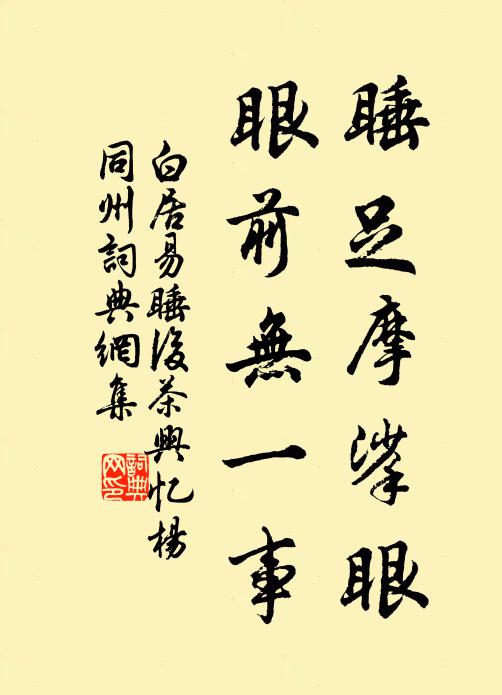 睡足摩挲眼
眼前無一事
白居易睡後茶興忆楊
同州詞典網集
詞典网印